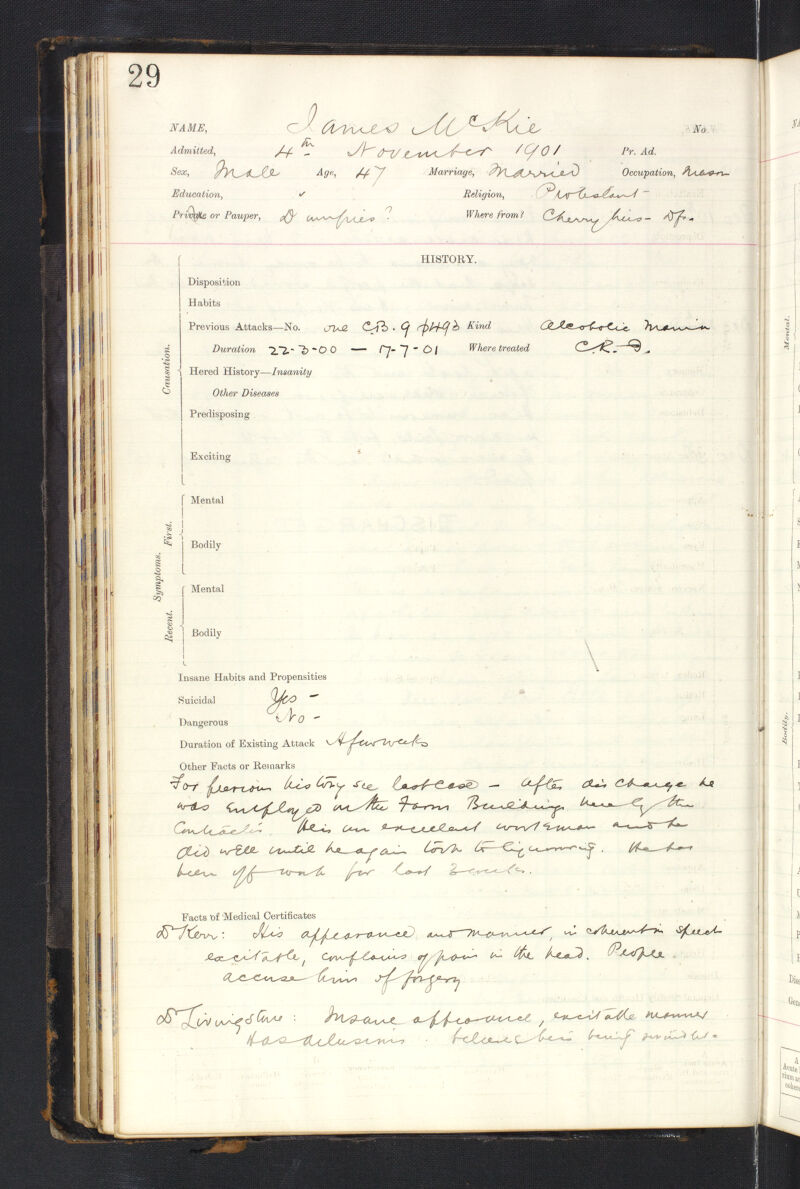 29
NAME, James McKie No.
Admitted, 4th November 1901 Pr. Ad.
Sex, Male Age, 47 Marriage, Married Occupation, Mason
Education, ✓ Religion, Protestant
Private or Pauper, Dumfries? Where from? Cherry - Dfs.
HISTORY.
Disposition
Habits
Previous Attacks—No. one C.B. 9 p493 Kind Alcoholic Mania
Duration 22-3-00 — 17-7-01 Where treated C.R.I.
Causation.
Hered History—Insanity
Other Diseases
Predisposing
Exciting
Symptoms.
First.
Mental
Bodily
Recent.
Mental
Bodily
Insane Habits and Propensities
Suicidal Yes -
Dangerous No -
Duration of Existing Attack A few weeks
Other Facts or Remarks
For previous history see last case - After discharge he
was employed on the Farm Buildings here by the
Contractor. He is an excellent workman and he
did well until he again took to liquoring. He has
been off work for last 3 weeks.
Facts of Medical Certificates
Dr Kerr: His appearance and manner, incoherent in speech
excitable, complains of pain in the head. People
accuse him of forgery
Dr Livingstone: Insane appearance, excitable manner
Has delusions. believes he is being